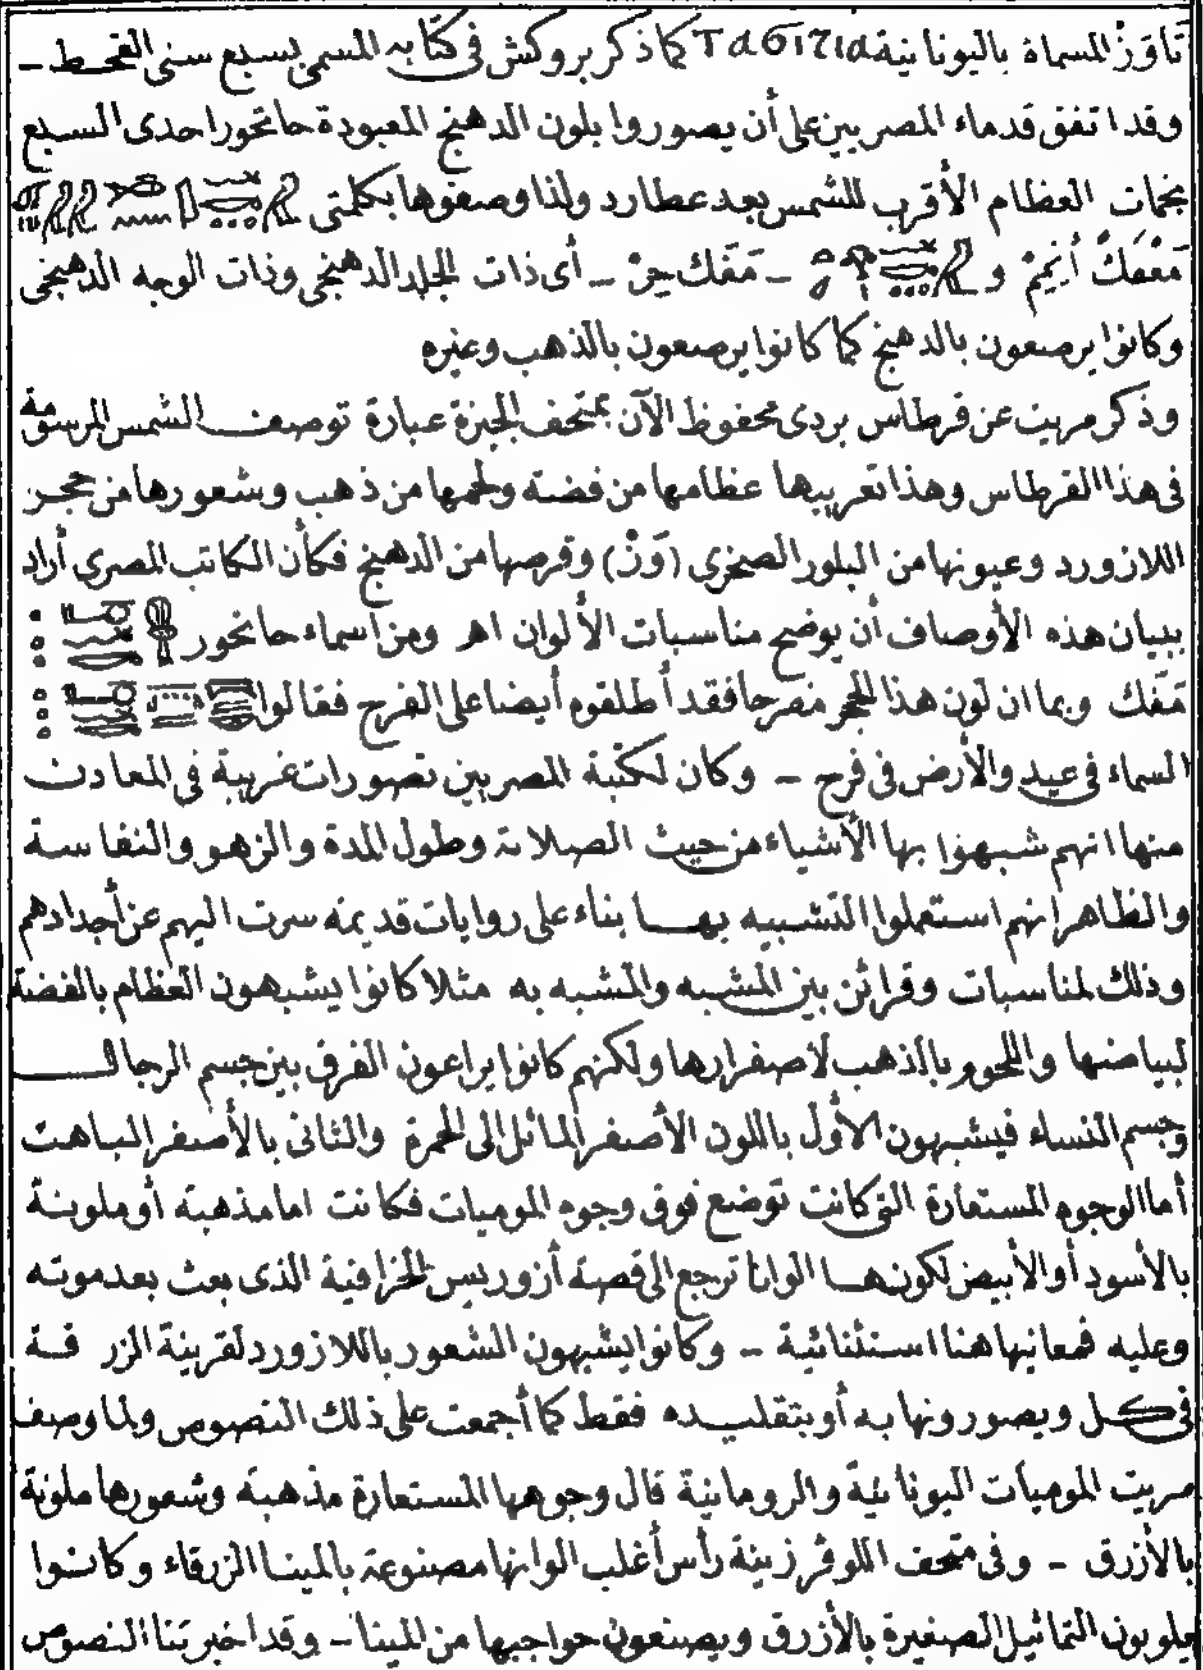 تَاوَزْ المسماة باليونانية Ταбιτια كما ذكر بروكش في كتابه المسمى بسبع سنى القحط ـ
وقد اتفق قدماء المصريين على أن يصوروا بلون الدهنج المعبودة حاتحور احدى السبع
نجمات العظام الأقرب للشمس بعد عطارد ولذا وصفوها بكلمتى
مَعْفَكْ أَنِيمْ و ـ مَفَك حِرْ ـ أى ذات الجلد الدهنجى وذات الوجه الدهنجى
وكانوا يرصعون بالدهنج كما كانوا يرصعون بالذهب وغيره
وذكر مريت عن قرطاس بردى محفوظ الآن بمتحف الجيزة عبارة توصف الشمس المرسومة
فى هذا القرطاس وهذا تعريبها عظامها من فضة ولحمها من ذهب وشعورها من حجر
اللازورد وعيونها من البلور الصخرى (وَنْ) وقرصها من الدهنج فكأن الكاتب المصرى أراد
ببيان هذه الأوصاف أن يوضح مناسبات الألوان اهر ومن اسماء حاتحور
مَفَك وبما ان لون هذا الحجر مفرحا فقد أطلقوه أيضا على الفرح فقالوا
السماء فى عيد والأرض فى فرح ـ وكان لكتبة المصريين تصورات غريبة فى المعادن
منها انهم شبهوا بها الأشياء من حيث الصلابة وطول المدة والزهو والنفاسة
والظاهر انهم استعملوا التشبيه بها بناء على روايات قديمة سرت اليهم عن أجدادهم
وذلك لمناسبات وقرائن بين المشبه والمشبه به مثلا كانوا يشبهون العظام بالفضة
لبياضها واللحوم بالذهب لاصفرارها ولكنهم كانوا يراعون الفرق بين جسم الرجال
وجسم النساء فيشبهون الأول باللون الأصفر المائل الى الحمرة والثانى بالأصفر الباهت
أما الوجوه المستعارة التى كانت توضع فوق وجوه الموميات فكانت اما مذهبة أو ملونة
بالأسود أو الأبيض لكونها الوانا ترجع الى قصة أزوريس الخرافية الذى بعث بعد موته
وعليه فمعانيها هنا استثنائية ـ وكانوا يشبهون الشعور باللازورد لقرينة الزرقة
فى كل ويصورونها به أو بتقليده فقط كما أجمعت على ذلك النصوص ولما وصف
مريت الموميات اليونانية والرومانية قال وجوهها المستعارة مذهبة وشعورها ملونة
بالأزرق ـ وفى متحف اللوفر زينة رأس أغلب الوانها مصنوعة بالمينا الزرقاء وكانوا
يلونون التماثيل الصغيرة بالأزرق ويصنعون حواجبها من المينا ـ وقد اخبرتنا النصوص